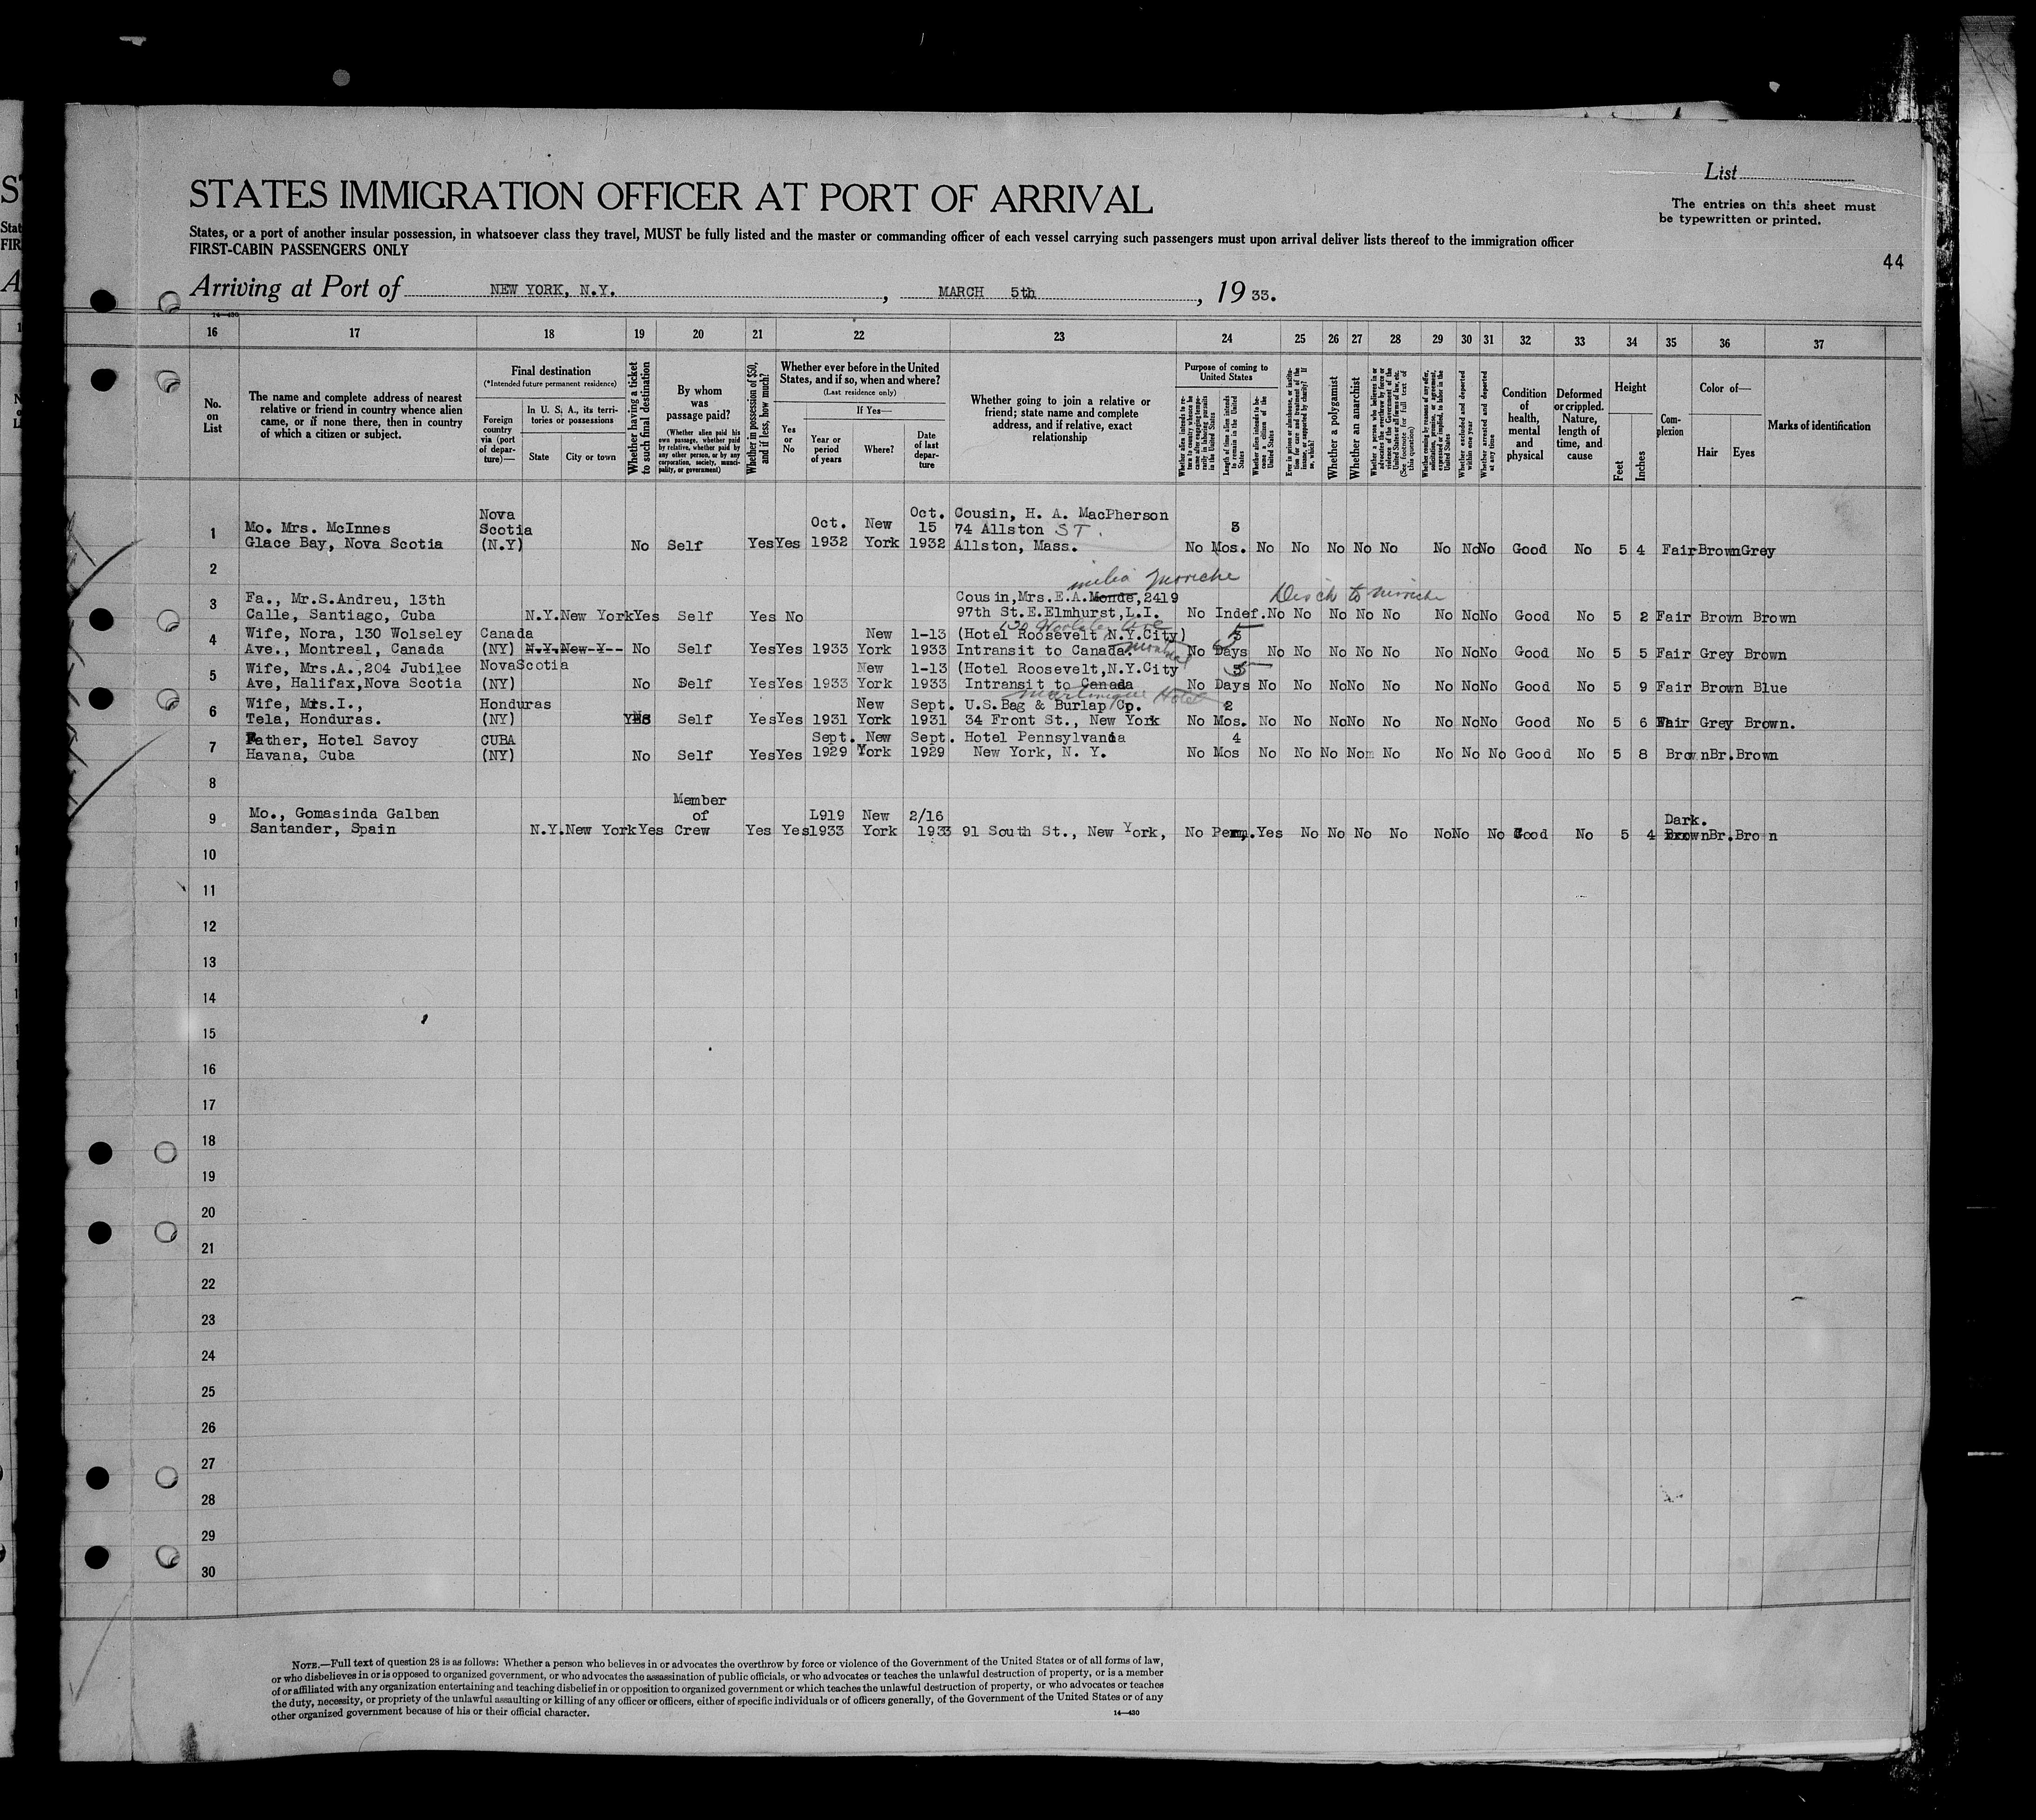 List
STATES IMMIGRATION OFFICER AT PORT OF ARRIVAL
The entries on this sheet must
be typewritten or printed.
States, or a port of another insular possession, in whatsoever class they travel, MUST be fully listed and the master or commanding officer of each vessel carrying such passengers must upon arrival deliver lists thereof to the immigration officer
FIRST-CABIN PASSENGERS ONLY
44
Arriving at Port of NEW YORK, N.Y. , MARCH 5th , 1933.
14—430
16 17 18 19 20 21 22 23 24 25 26 27 28 29 30 31 32 33 34 35 36 37
No. on List
The name and complete address of nearest relative or friend in country whence alien came, or if none there, then in country of which a citizen or subject.
Final destination
(*Intended future permanent residence)
Foreign country via (port of departure)—
In U. S. A., its territories or possessions
State City or town
Whether having a ticket to such final destination
By whom was passage paid?
(Whether alien paid his own passage, whether paid by relative, whether paid by any other person, or by any corporation, society, municipality, or government)
Whether in possession of $50, and if less, how much?
Whether ever before in the United States, and if so, when and where?
(Last residence only)
Yes or No
If Yes—
Year or period of years
Where?
Date of last departure
Whether going to join a relative or friend; state name and complete address, and if relative, exact relationship
Purpose of coming to United States
Length of time alien intends to remain in the United States
Whether alien intends to become a citizen of the United States
Whether a polygamist
Whether an anarchist
Whether excluded and deported within one year
Whether arrested and deported at any time
Condition of health, mental and physical
Deformed or crippled. Nature, length of time, and cause
Height
Feet Inches
Complexion
Color of—
Hair Eyes
Marks of identification
Nova Oct. Cousin, H. A. MacPherson
1 Mo. Mrs. McInnes Scotia Oct. New 15 74 Allston ST. 3
Glace Bay, Nova Scotia (N.Y) No Self Yes Yes 1932 York 1932 Allston, Mass. No Mos. No No No No No No No No Good No 5 4 Fair Brown Grey
2
3 Fa., Mr.S.Andreu, 13th Cousin,Mrs.E.A.Monde,2419
Calle, Santiago, Cuba N.Y. New York Yes Self Yes No 97th St.E.Elmhurst,L.I. No Indef. No No No No No No No No Good No 5 2 Fair Brown Brown
4 Wife, Nora, 130 Wolseley Canada New 1-13 (Hotel Roosevelt,N.Y.City)
Ave., Montreal, Canada (NY) N.Y. New-Y-- No Self Yes Yes 1933 York 1933 Intransit to Canada. Montreal No Days No No No No No No No No Good No 5 5 Fair Grey Brown
5 Wife, Mrs.A.,204 Jubilee NovaScotia New 1-13 (Hotel Roosevelt,N.Y.City
Ave, Halifax,Nova Scotia (NY) No Self Yes Yes 1933 York 1933 Intransit to Canada No Days No No No No No No No No Good No 5 9 Fair Brown Blue
Martinique Hotel
6 Wife, Mrs.I., Honduras New Sept. U.S. Bag & Burlap Cp. 2
Tela, Honduras. (NY) Yes Self Yes Yes 1931 York 1931 34 Front St., New York No Mos. No No No No No No No No Good No 5 6 Fair Grey Brown.
7 Father, Hotel Savoy CUBA Sept. New Sept. Hotel Pennsylvania 4
Havana, Cuba (NY) No Self Yes Yes 1929 York 1929 New York, N. Y. No Mos No No No No No No No No Good No 5 8 Brown Br. Brown
8
Member
9 Mo., Gomasinda Galban of L919 New 2/16 Dark.
Santander, Spain N.Y. New York Yes Crew Yes Yes 1933 York 1933 91 South St., New York, No Perm. Yes No No No No No No No Good No 5 4 Brown Br. Bro n
10
11
12
13
14
15
16
17
18
19
20
21
22
23
24
25
26
27
28
29
30
NOTE.—Full text of question 28 is as follows: Whether a person who believes in or advocates the overthrow by force or violence of the Government of the United States or of all forms of law,
or who disbelieves in or is opposed to organized government, or who advocates the assassination of public officials, or who advocates or teaches the unlawful destruction of property, or is a member
of or affiliated with any organization entertaining and teaching disbelief in or opposition to organized government or which teaches the unlawful destruction of property, or who advocates or teaches
the duty, necessity, or propriety of the unlawful assaulting or killing of any officer or officers, either of specific individuals or of officers generally, of the Government of the United States or of any
other organized government because of his or their official character.
14—430